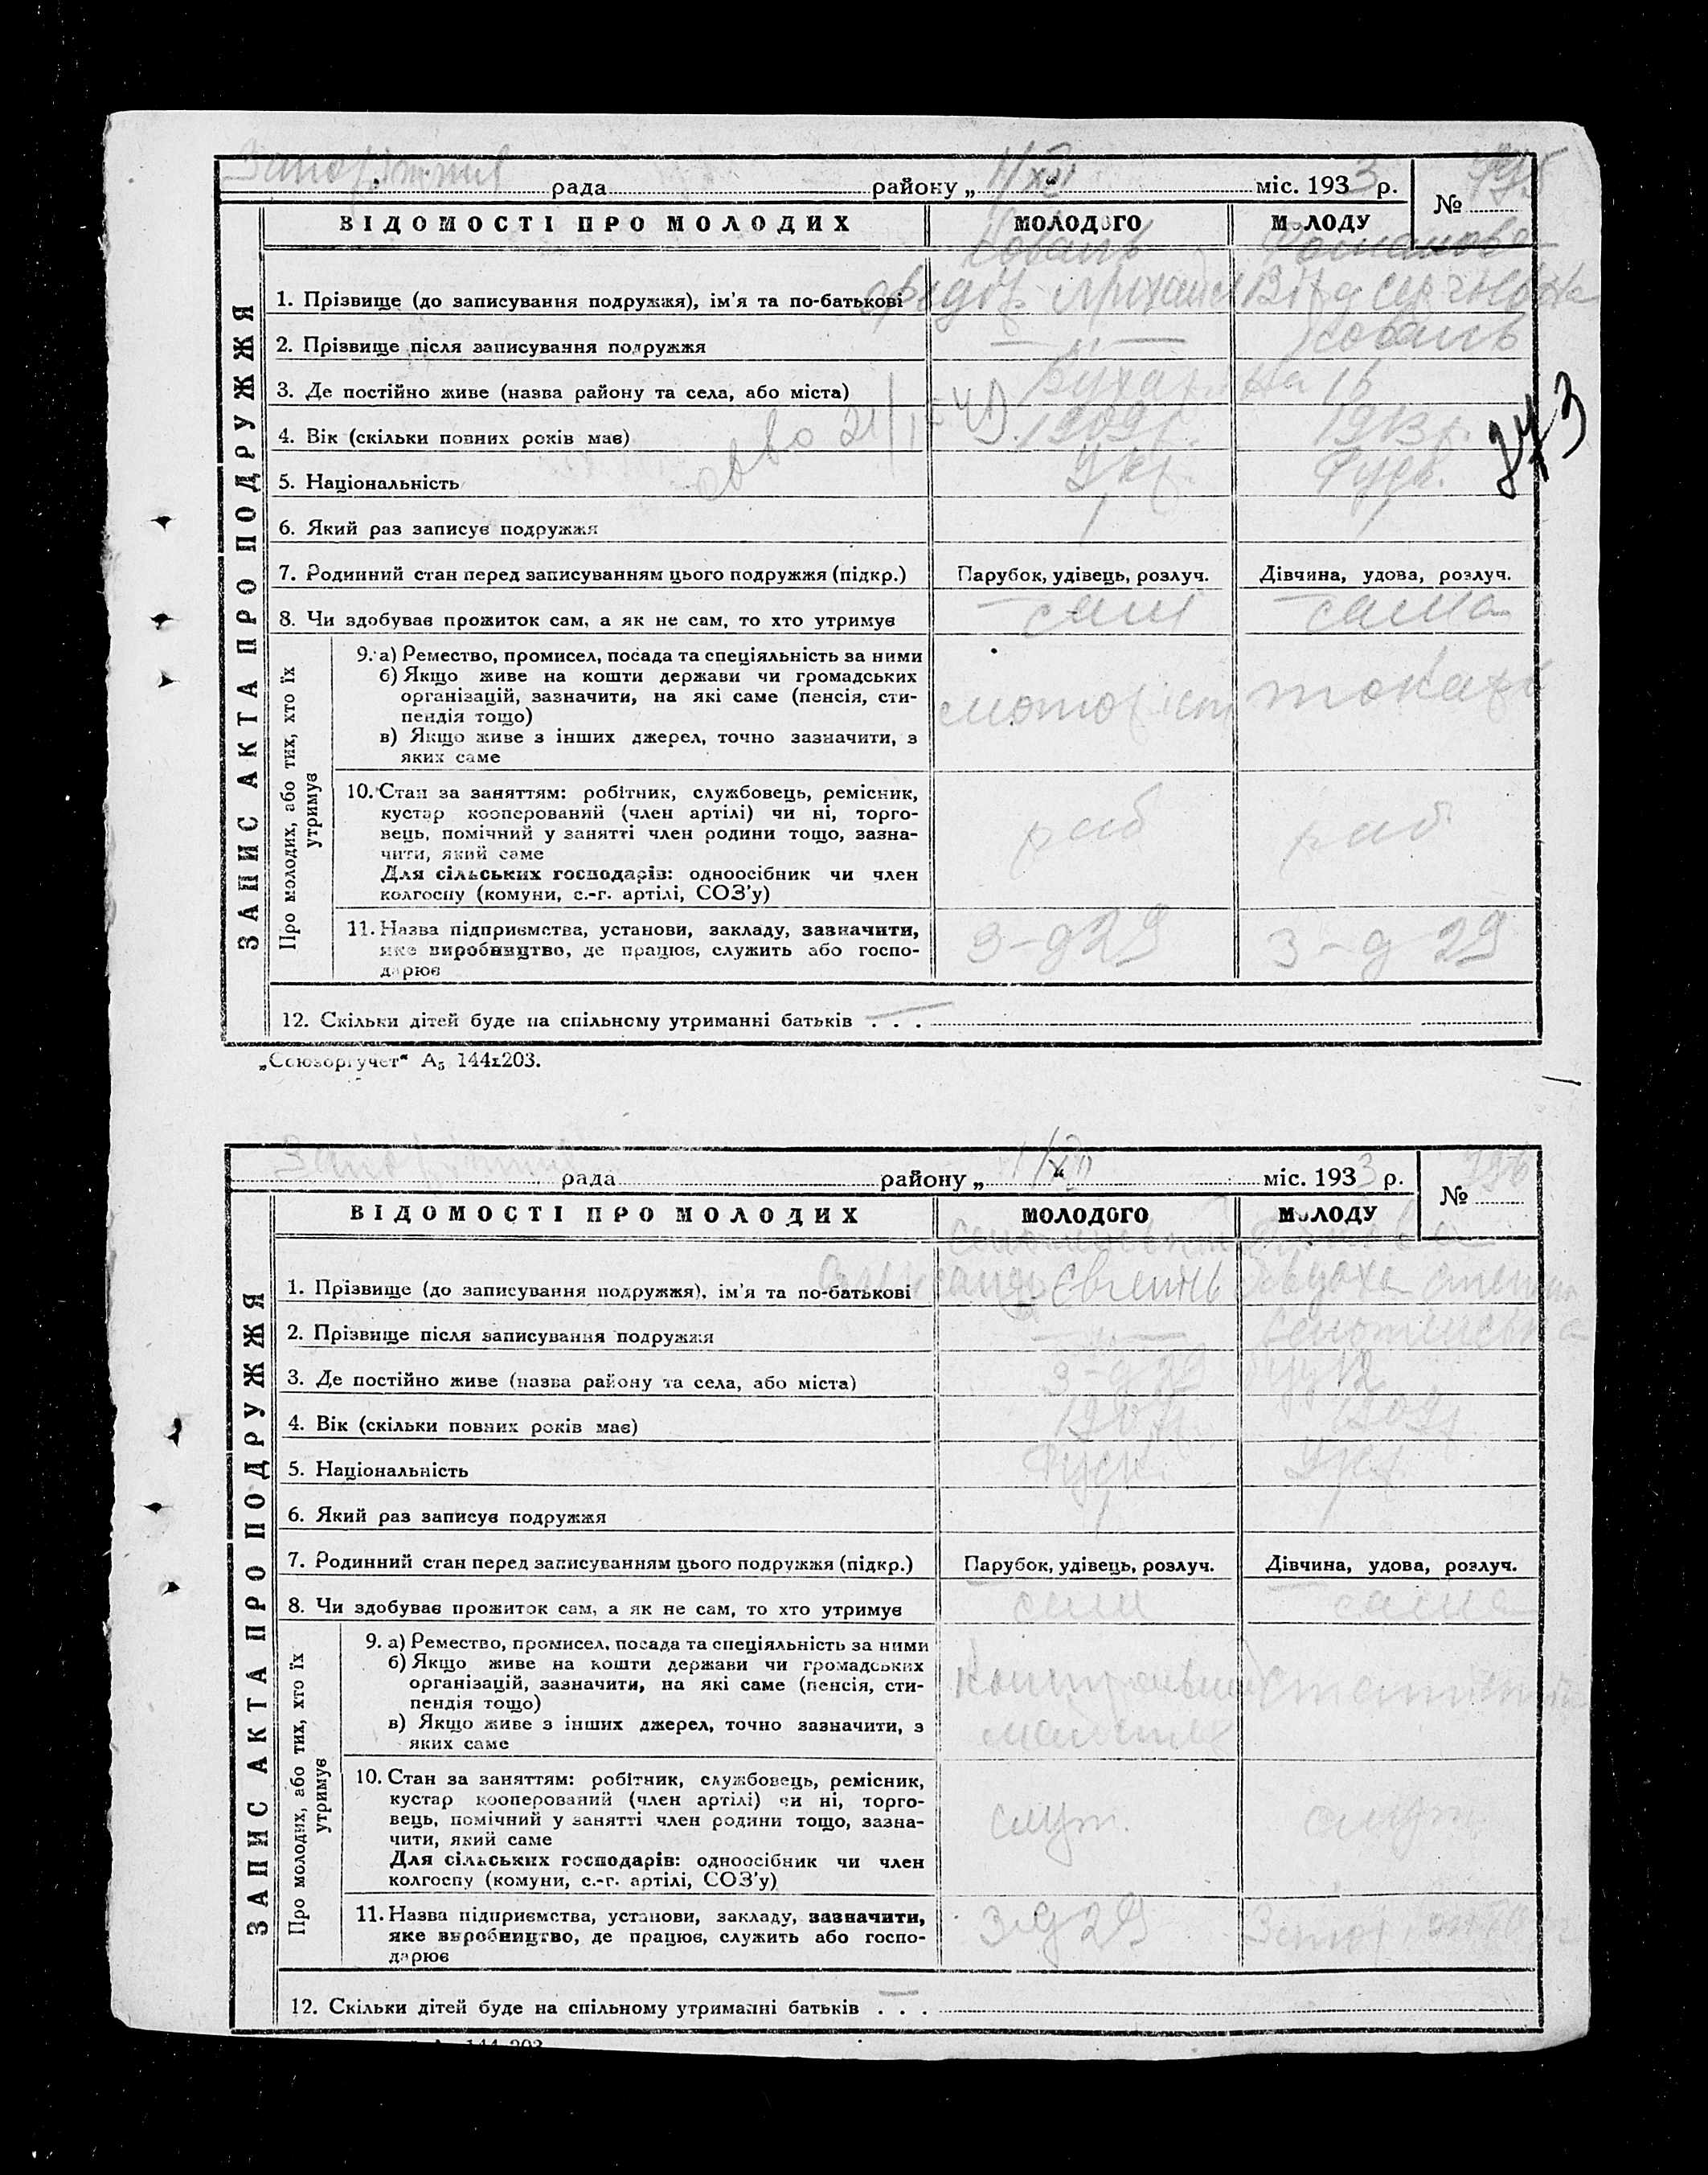 рада району „ 1/XII “ міс. 1933 р. № 995
ВІДОМОСТІ ПРО МОЛОДИХ МОЛОДОГО МОЛОДУ
ЗАПИС АКТА ПРО ПОДРУЖЖЯ
Коваль Романова
1. Прізвище (до записування подружжя), ім’я та по-батькові
2. Прізвище після записування подружжя — „ — Коваль
3. Де постійно живе (назва району та села, або міста)
4. Вік (скільки повних років має) 1909 р. 1913 р.
5. Національність Укр. Руськ.
273
6. Який раз записує подружжя 1 1
7. Родинний стан перед записуванням цього подружжя (підкр.) Парубок, удівець, розлуч. Дівчина, удова, розлуч.
8. Чи здобуває прожиток сам, а як не сам, то хто утримує сам сама
Про молодих, або тих, хто їх утримує
9. а) Ремество, промисел, посада та спеціяльність за ними
б) Якщо живе на кошти держави чи громадських
організацій, зазначити, на які саме (пенсія, сти-
пендія тощо)
моторіст токарь
в) Якщо живе з інших джерел, точно зазначити, з
яких саме
10. Стан за заняттям: робітник, службовець, ремісник,
кустар кооперований (член артілі) чи ні, торго-
вець, помічний у занятті член родини тощо, зазна-
чити, який саме
раб раб
Для сільських господарів: одноосібник чи член
колгоспу (комуни, с.-г. артілі, СОЗ’у)
11. Назва підприємства, установи, закладу, зазначити,
яке виробництво, де працює, служить або госпо-
дарює
З-д 29 З-д 29
12. Скільки дітей буде на спільному утриманні батьків . . . —
„Союзоргучет“ А₅ 144х203.
рада району „ 1/XII “ міс. 1933 р. № 996
ВІДОМОСТІ ПРО МОЛОДИХ МОЛОДОГО МОЛОДУ
ЗАПИС АКТА ПРО ПОДРУЖЖЯ
1. Прізвище (до записування подружжя), ім’я та по-батькові
2. Прізвище після записування подружжя — „ —
3. Де постійно живе (назва району та села, або міста) З-д 29
4. Вік (скільки повних років має) 1909 р.
5. Національність Руськ. Укр.
6. Який раз записує подружжя 1 1
7. Родинний стан перед записуванням цього подружжя (підкр.) Парубок, удівець, розлуч. Дівчина, удова, розлуч.
8. Чи здобуває прожиток сам, а як не сам, то хто утримує сам сама
Про молодих, або тих, хто їх утримує
9. а) Ремество, промисел, посада та спеціяльність за ними
б) Якщо живе на кошти держави чи громадських
організацій, зазначити, на які саме (пенсія, сти-
пендія тощо)
в) Якщо живе з інших джерел, точно зазначити, з
яких саме
10. Стан за заняттям: робітник, службовець, ремісник,
кустар кооперований (член артілі) чи ні, торго-
вець, помічний у занятті член родини тощо, зазна-
чити, який саме
служ. служ.
Для сільських господарів: одноосібник чи член
колгоспу (комуни, с.-г. артілі, СОЗ’у)
11. Назва підприємства, установи, закладу, зазначити,
яке виробництво, де працює, служить або госпо-
дарює
З-д 29
12. Скільки дітей буде на спільному утриманні батьків . . . —